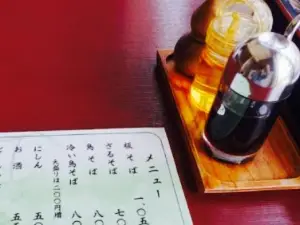 メニュー
板そば 一、〇五
ざるそば 七〇
鳥そば 八〇
冷い鳥そば 八〇
大盛りは二〇〇円増
にしん 五〇
お酒 五